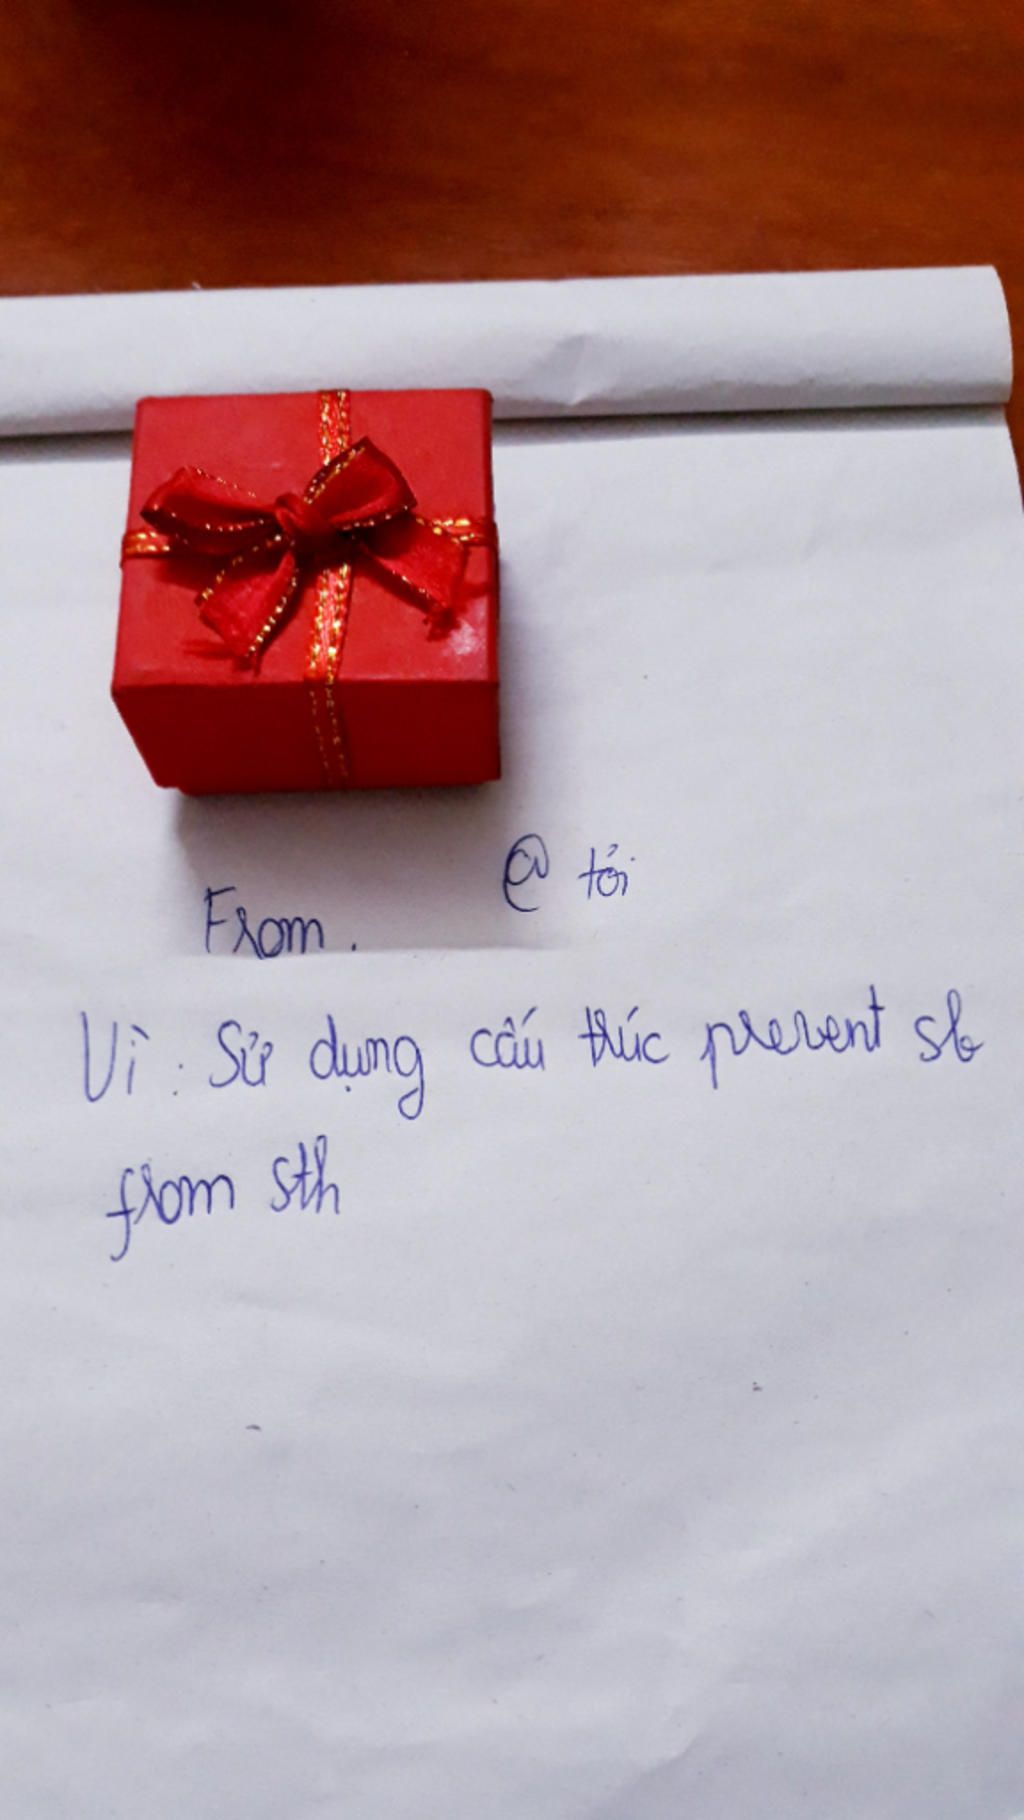 @ tỏi
From.
Vì: Sử dụng cấu trúc prevent sb
from sth